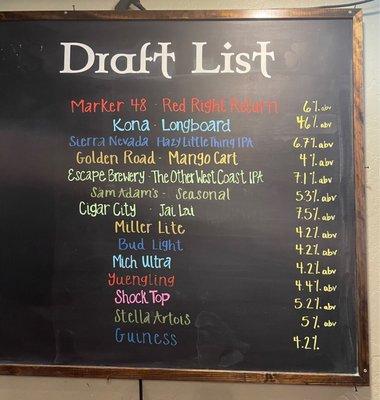 Draft List
Marker 48 - Red Right Return 6% abv
Kona - Longboard 4.6% abv
Sierra Nevada Hazy Little Thing IPA 6.7% abv
Golden Road - Mango Cart 4% abv
Escape Brewery - The Other West Coast IPA 7.1% abv
Sam Adam's - Seasonal 5.3% abv
Cigar City - Jai Lai 7.5% abv
Miller Lite 4.2% abv
Bud Light 4.2% abv
Mich Ultra 4.2% abv
Yuengling 4.4% abv
Shock Top 5.2% abv
Stella Artois 5% abv
Guiness 4.2%